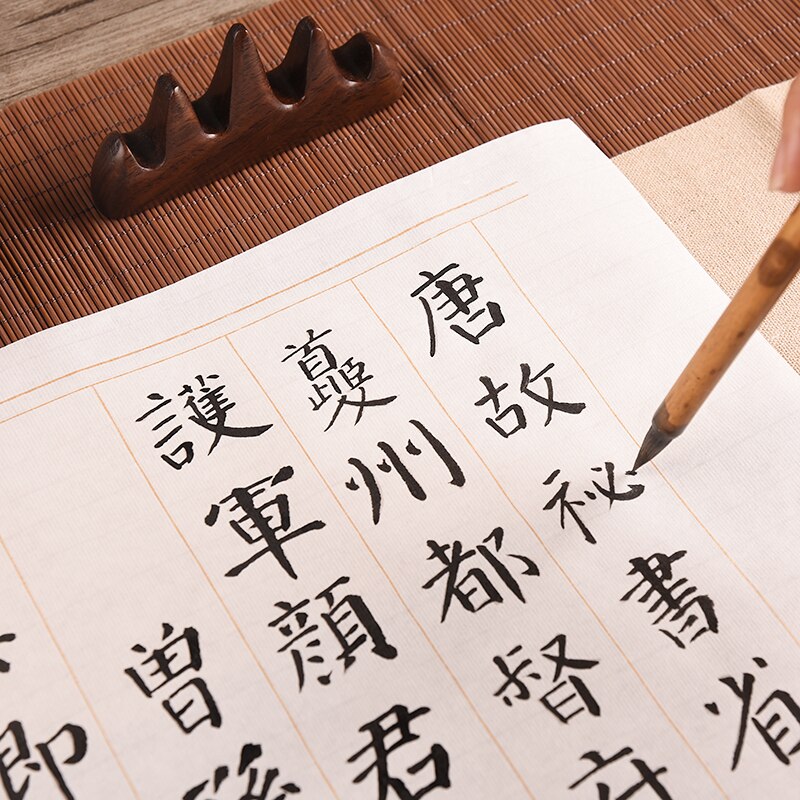 唐故祕書省
夔州都督府
護軍顔君
曾孫